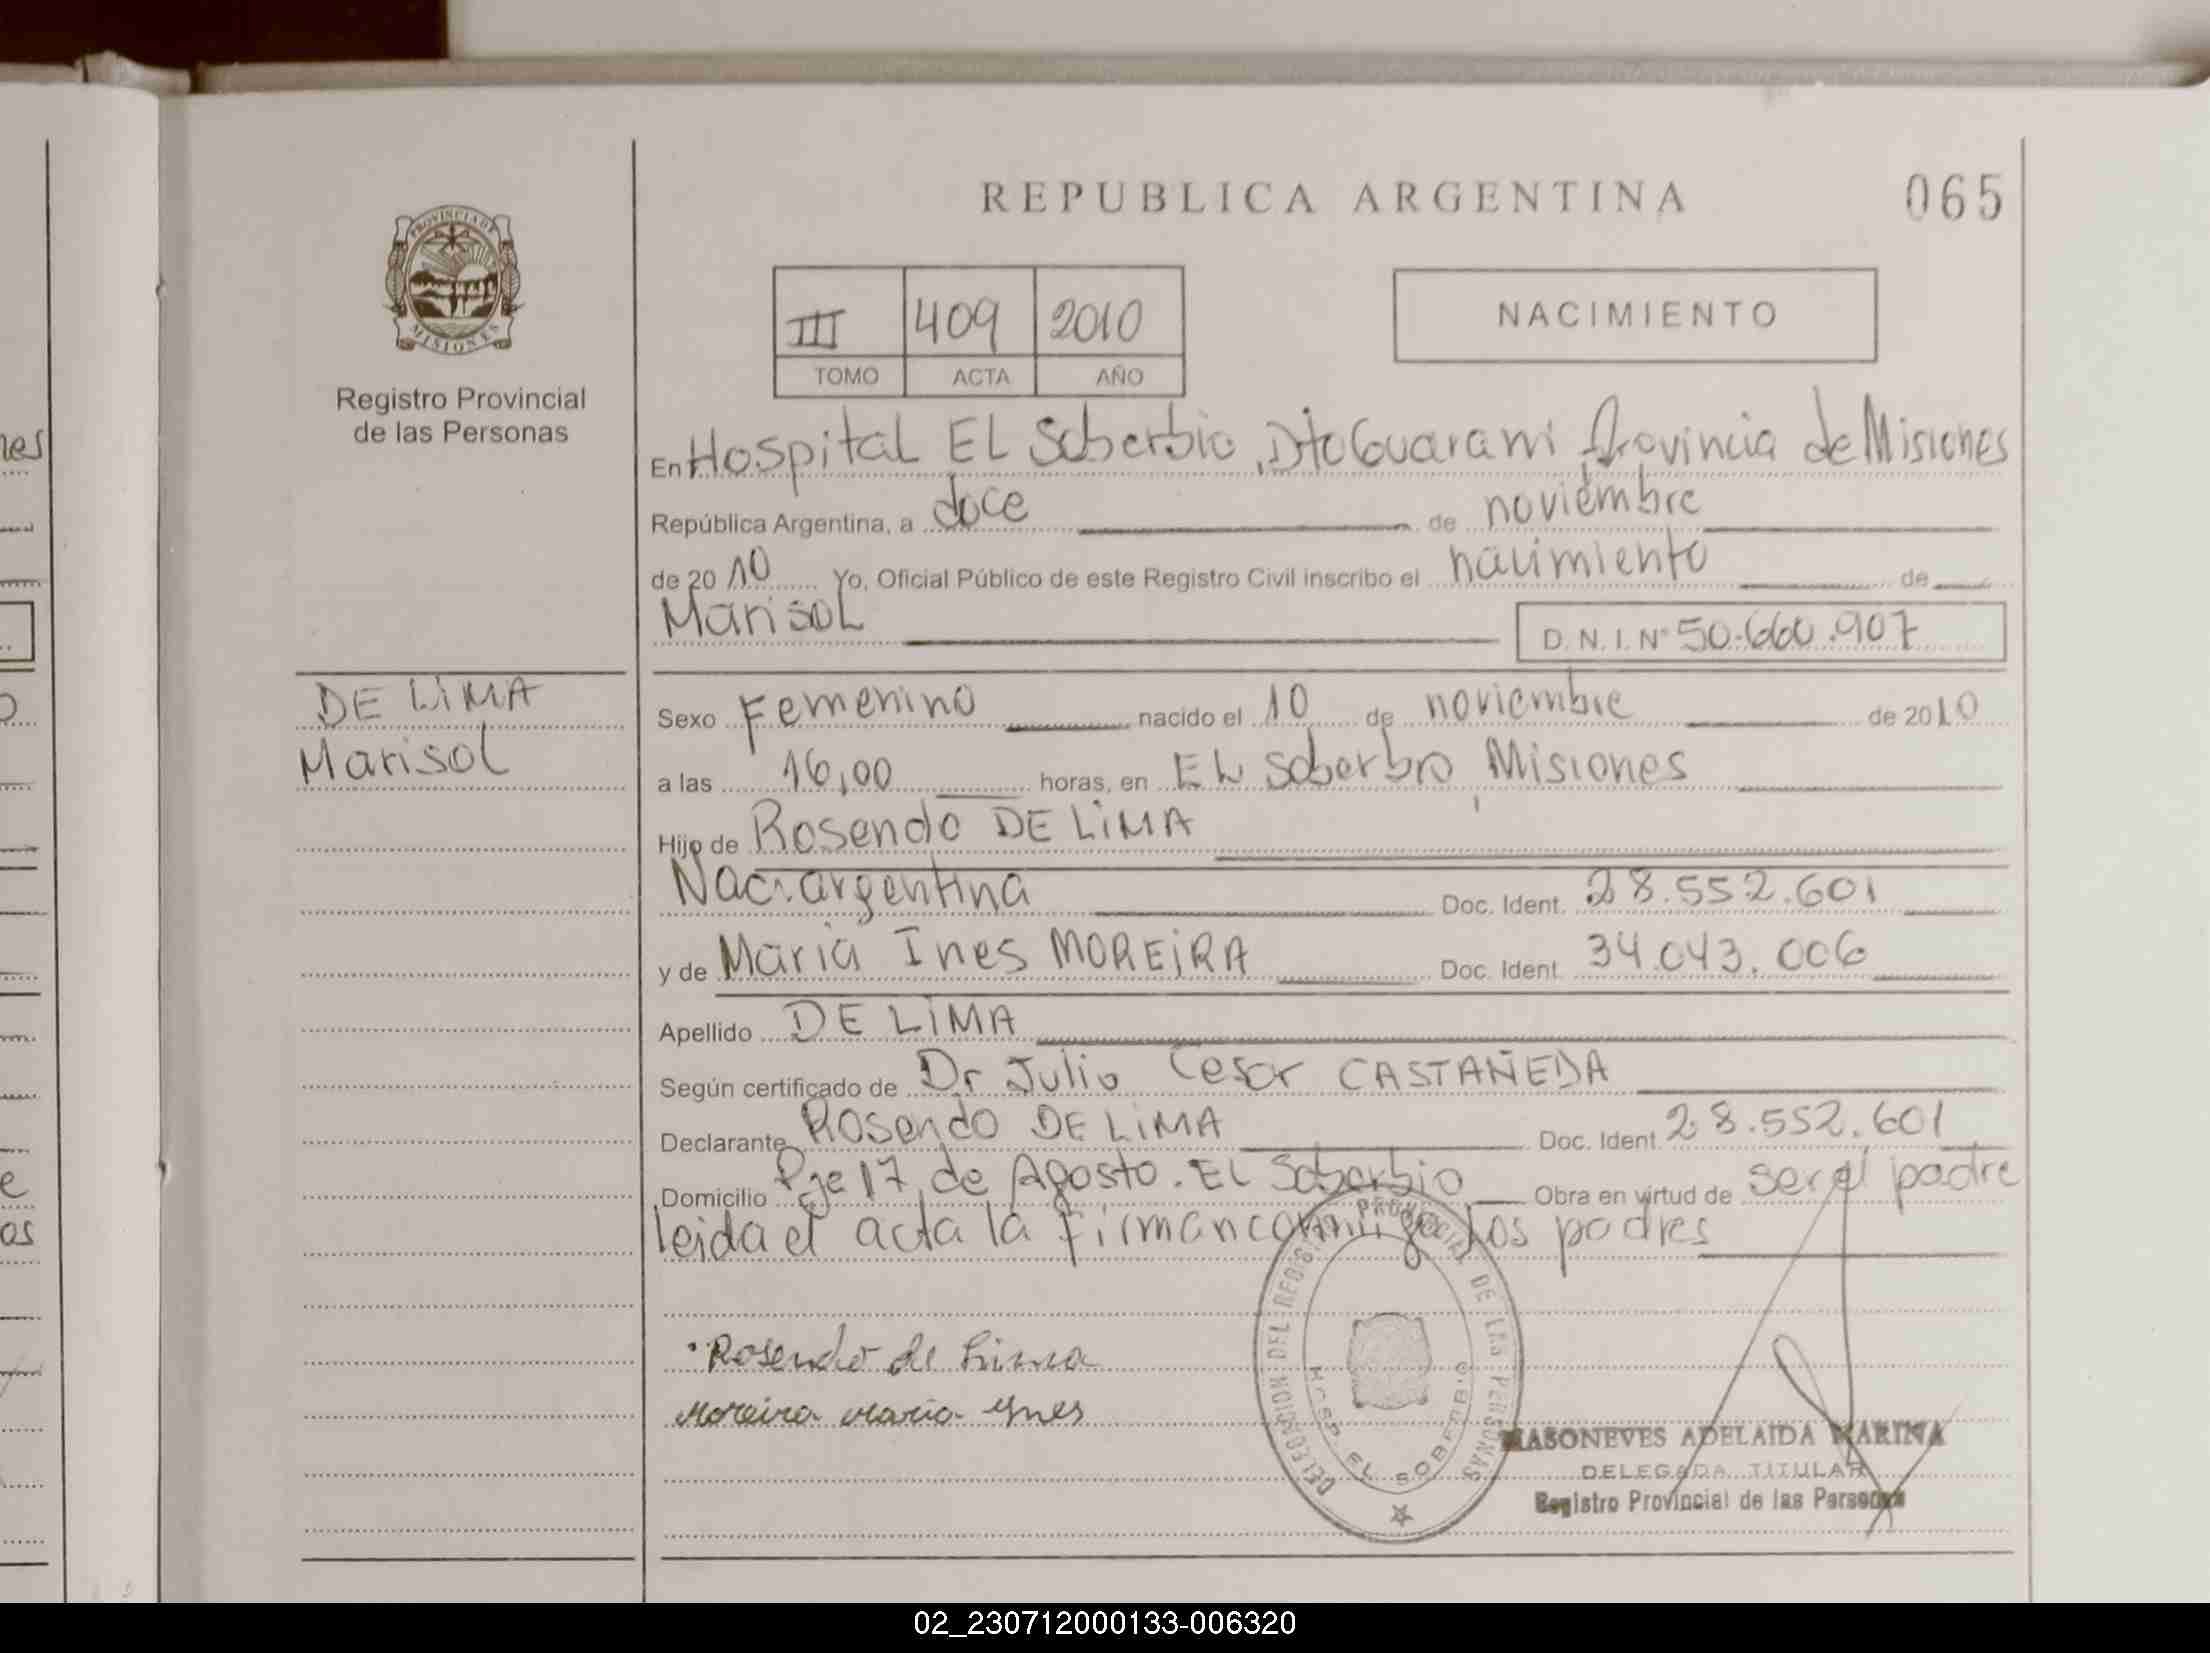 REPUBLICA ARGENTINA
065
PROVINCIA DE
MISIONES
Registro Provincial
de las Personas
III 409 2010
TOMO ACTA AÑO
NACIMIENTO
En Hospital EL Soberbio, Dto Guarani Provincia de Misiones
República Argentina, a doce de noviembre
de 2010 Yo, Oficial Público de este Registro Civil inscribo el nacimiento de
Marisol
D.N.I. Nº 50.660.907
DE LIMA
Marisol
Sexo Femenino nacido el 10 de noviembre de 2010
a las 16,00 horas, en EL Soberbio, Misiones
Hijo de Rosendo DE LIMA
Nac. argentina Doc. Ident. 28.552.601
y de Maria Ines MOREIRA Doc. Ident. 34.043.006
Apellido DE LIMA
Según certificado de Dr Julio Cesar CASTAÑEDA
Declarante Rosendo DE LIMA Doc. Ident. 28.552.601
Domicilio Pje 17 de Agosto. EL Soberbio Obra en virtud de ser el padre
leida el acta la firman conmigo los padres
Rosendo de Lima
Moreira Maria Ynes
DELEGACION DEL REGISTRO PROVINCIAL DE LAS PERSONAS
HOSP. EL SOBERBIO
MASONEVES ADELAIDA MARINA
DELEGADA TITULAR
Registro Provincial de las Personas
nes
e
os
02_230712000133-006320